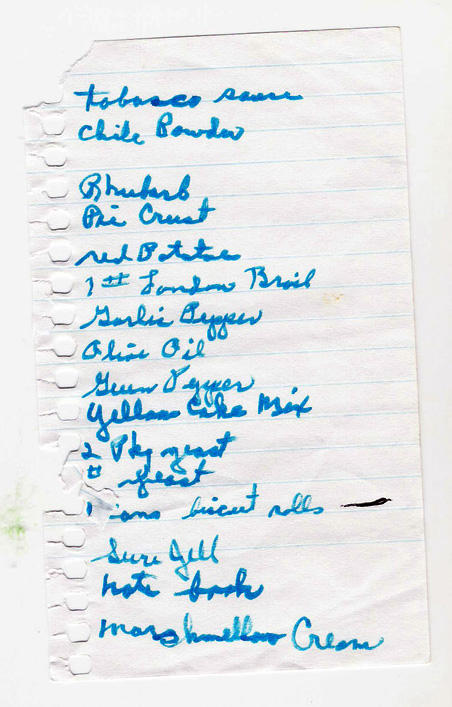 Tobasco sauce
Chile Powder
Rhubarb
Pie Crust
red Potatoe
1 # London Broil
Garlic Pepper
Olive Oil
Green Pepper
Yellow Cake Mix
2 Pkg yeast
# yeast
biscut rolls
Sure Jell
note book
marshmellow Cream